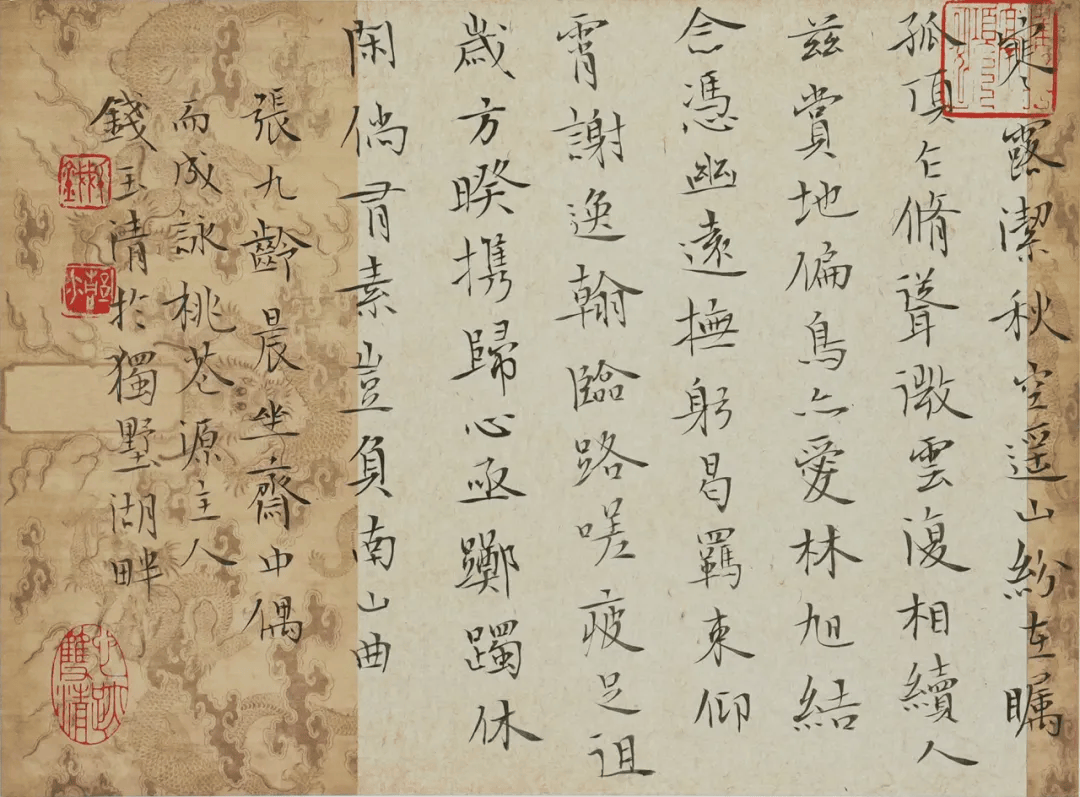 寒露潔秋空遥山紛在矚
孤頂乍脩聳微雲復相續人
兹賞地偏鳥亦愛林旭結
念憑幽遠撫躬曷羈束仰
霄謝逸翰臨路嗟疲足徂
歲方暌携歸心亟躑躅休
閑倘有素豈負南山曲
張九齡晨坐齋中偶
而成詠桃花源主人
錢玉清於獨墅湖畔
心跡雙清